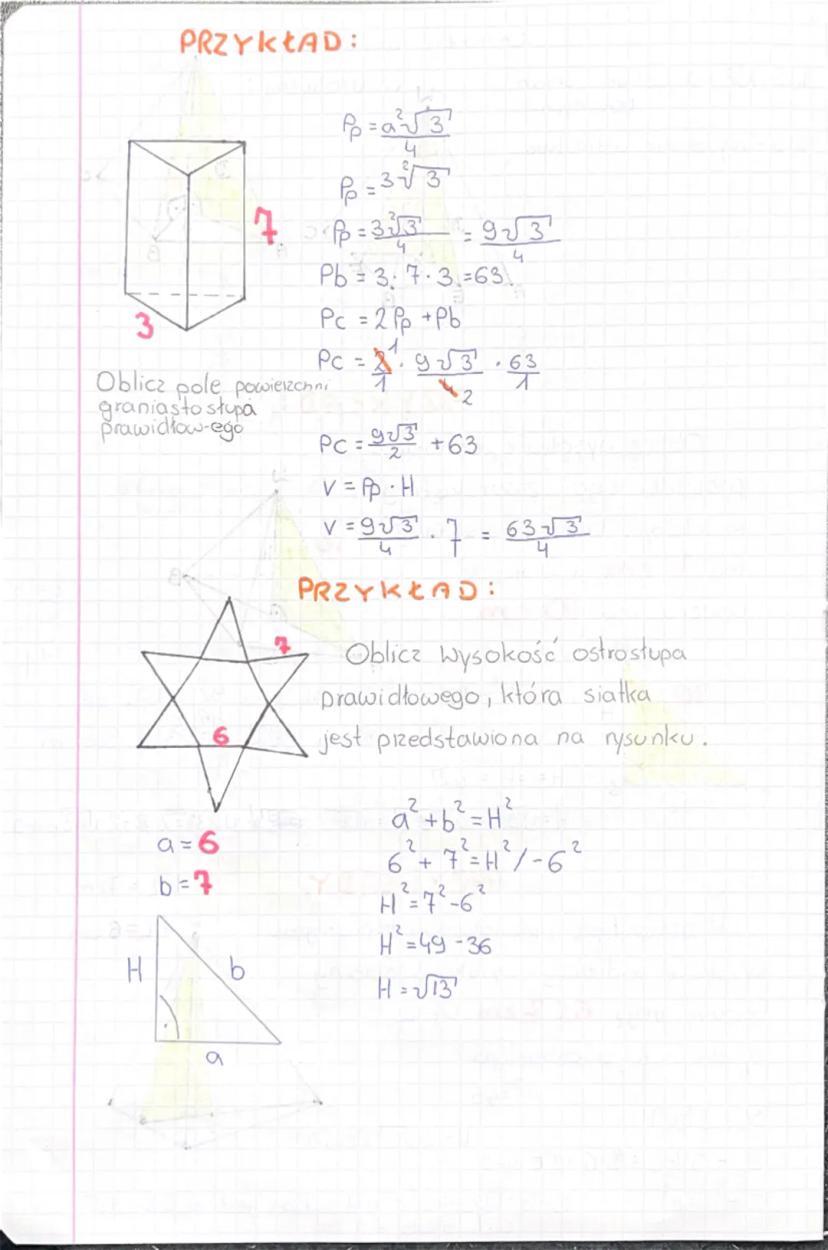 PRZYKŁAD:
Pp = a²√3 / 4
Pp = 3²√3
7
Pp = 3²√3 / 4 = 9√3 / 4
Pb = 3 · 7 · 3 = 63
Pc = 2Pp + Pb
3
Pc = 2 1 / 1 · 9√3 / 4 2 · 63 / 1
Oblicz pole powierzchni
graniastosłupa
prawidłow-ego
Pc = 9√3 / 2 + 63
V = Pp · H
V = 9√3 / 4 · 7 = 63√3 / 4
PRZYKŁAD:
7
6
Oblicz wysokość ostrosłupa
prawidłowego, która siatka
jest przedstawiona na rysunku.
a = 6
b = 7
a² + b² = H²
6² + 7² = H² / -6²
H² = 7² - 6²
H² = 49 - 36
H = √13
H
b
a